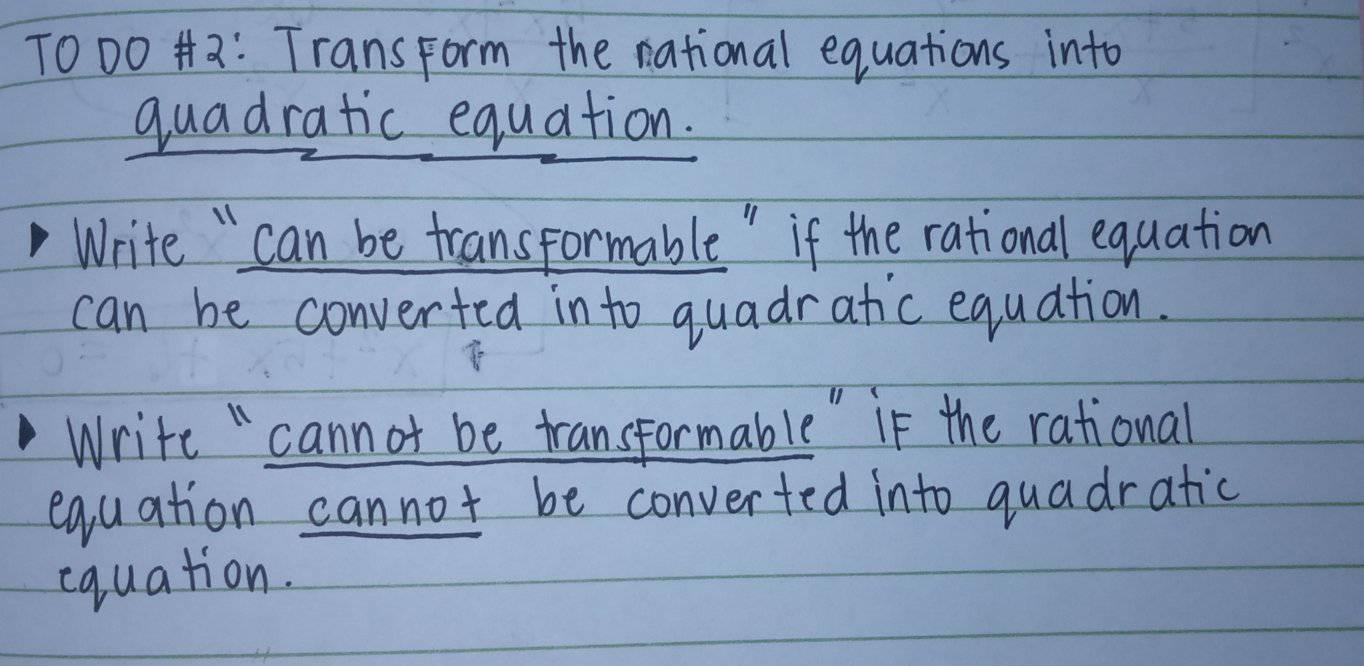 TO DO #2: Transform the rational equations into
quadratic equation.
Write "can be transformable" if the rational equation
can be converted into quadratic equation.
Write "cannot be transformable" if the rational
equation cannot be converted into quadratic
equation.